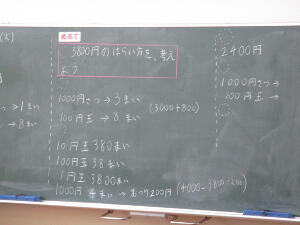 めあて
3800円のはらい方を、考え
よう
1000円さつ→3まい
(3000+800)
100円玉→8まい
10円玉380まい
100円玉38まい
1円玉3800まい
1000円 4まい→おつり200円(4000-3800=200)
→1まい
→8まい
2400円
1000円さつ→
100円玉→